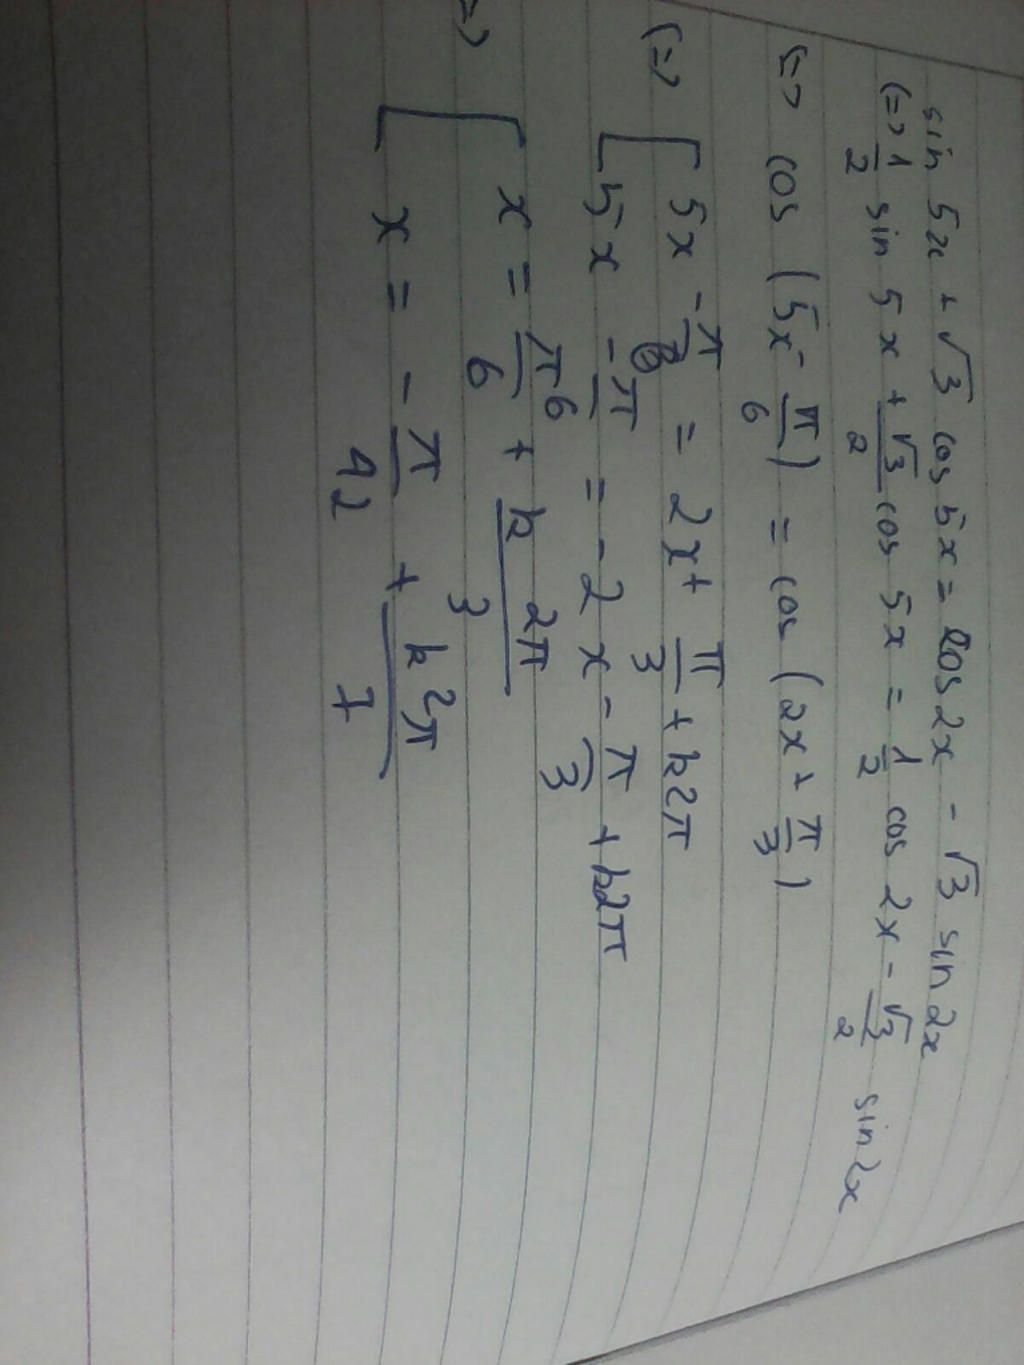 sin 5x + √3 cos 5x = cos 2x - √3 sin 2x
(=> 1/2 sin 5x + √3/2 cos 5x = 1/2 cos 2x - √3/2 sin 2x
(=> cos (5x - π/6) = cos (2x + π/3)
(=> [ 5x - π/6 = 2x + π/3 + k2π
[ 5x - π/6 = -2x - π/3 + k2π
=> [ x = π/6 + k2π/3
[ x = - π/42 + k2π/7